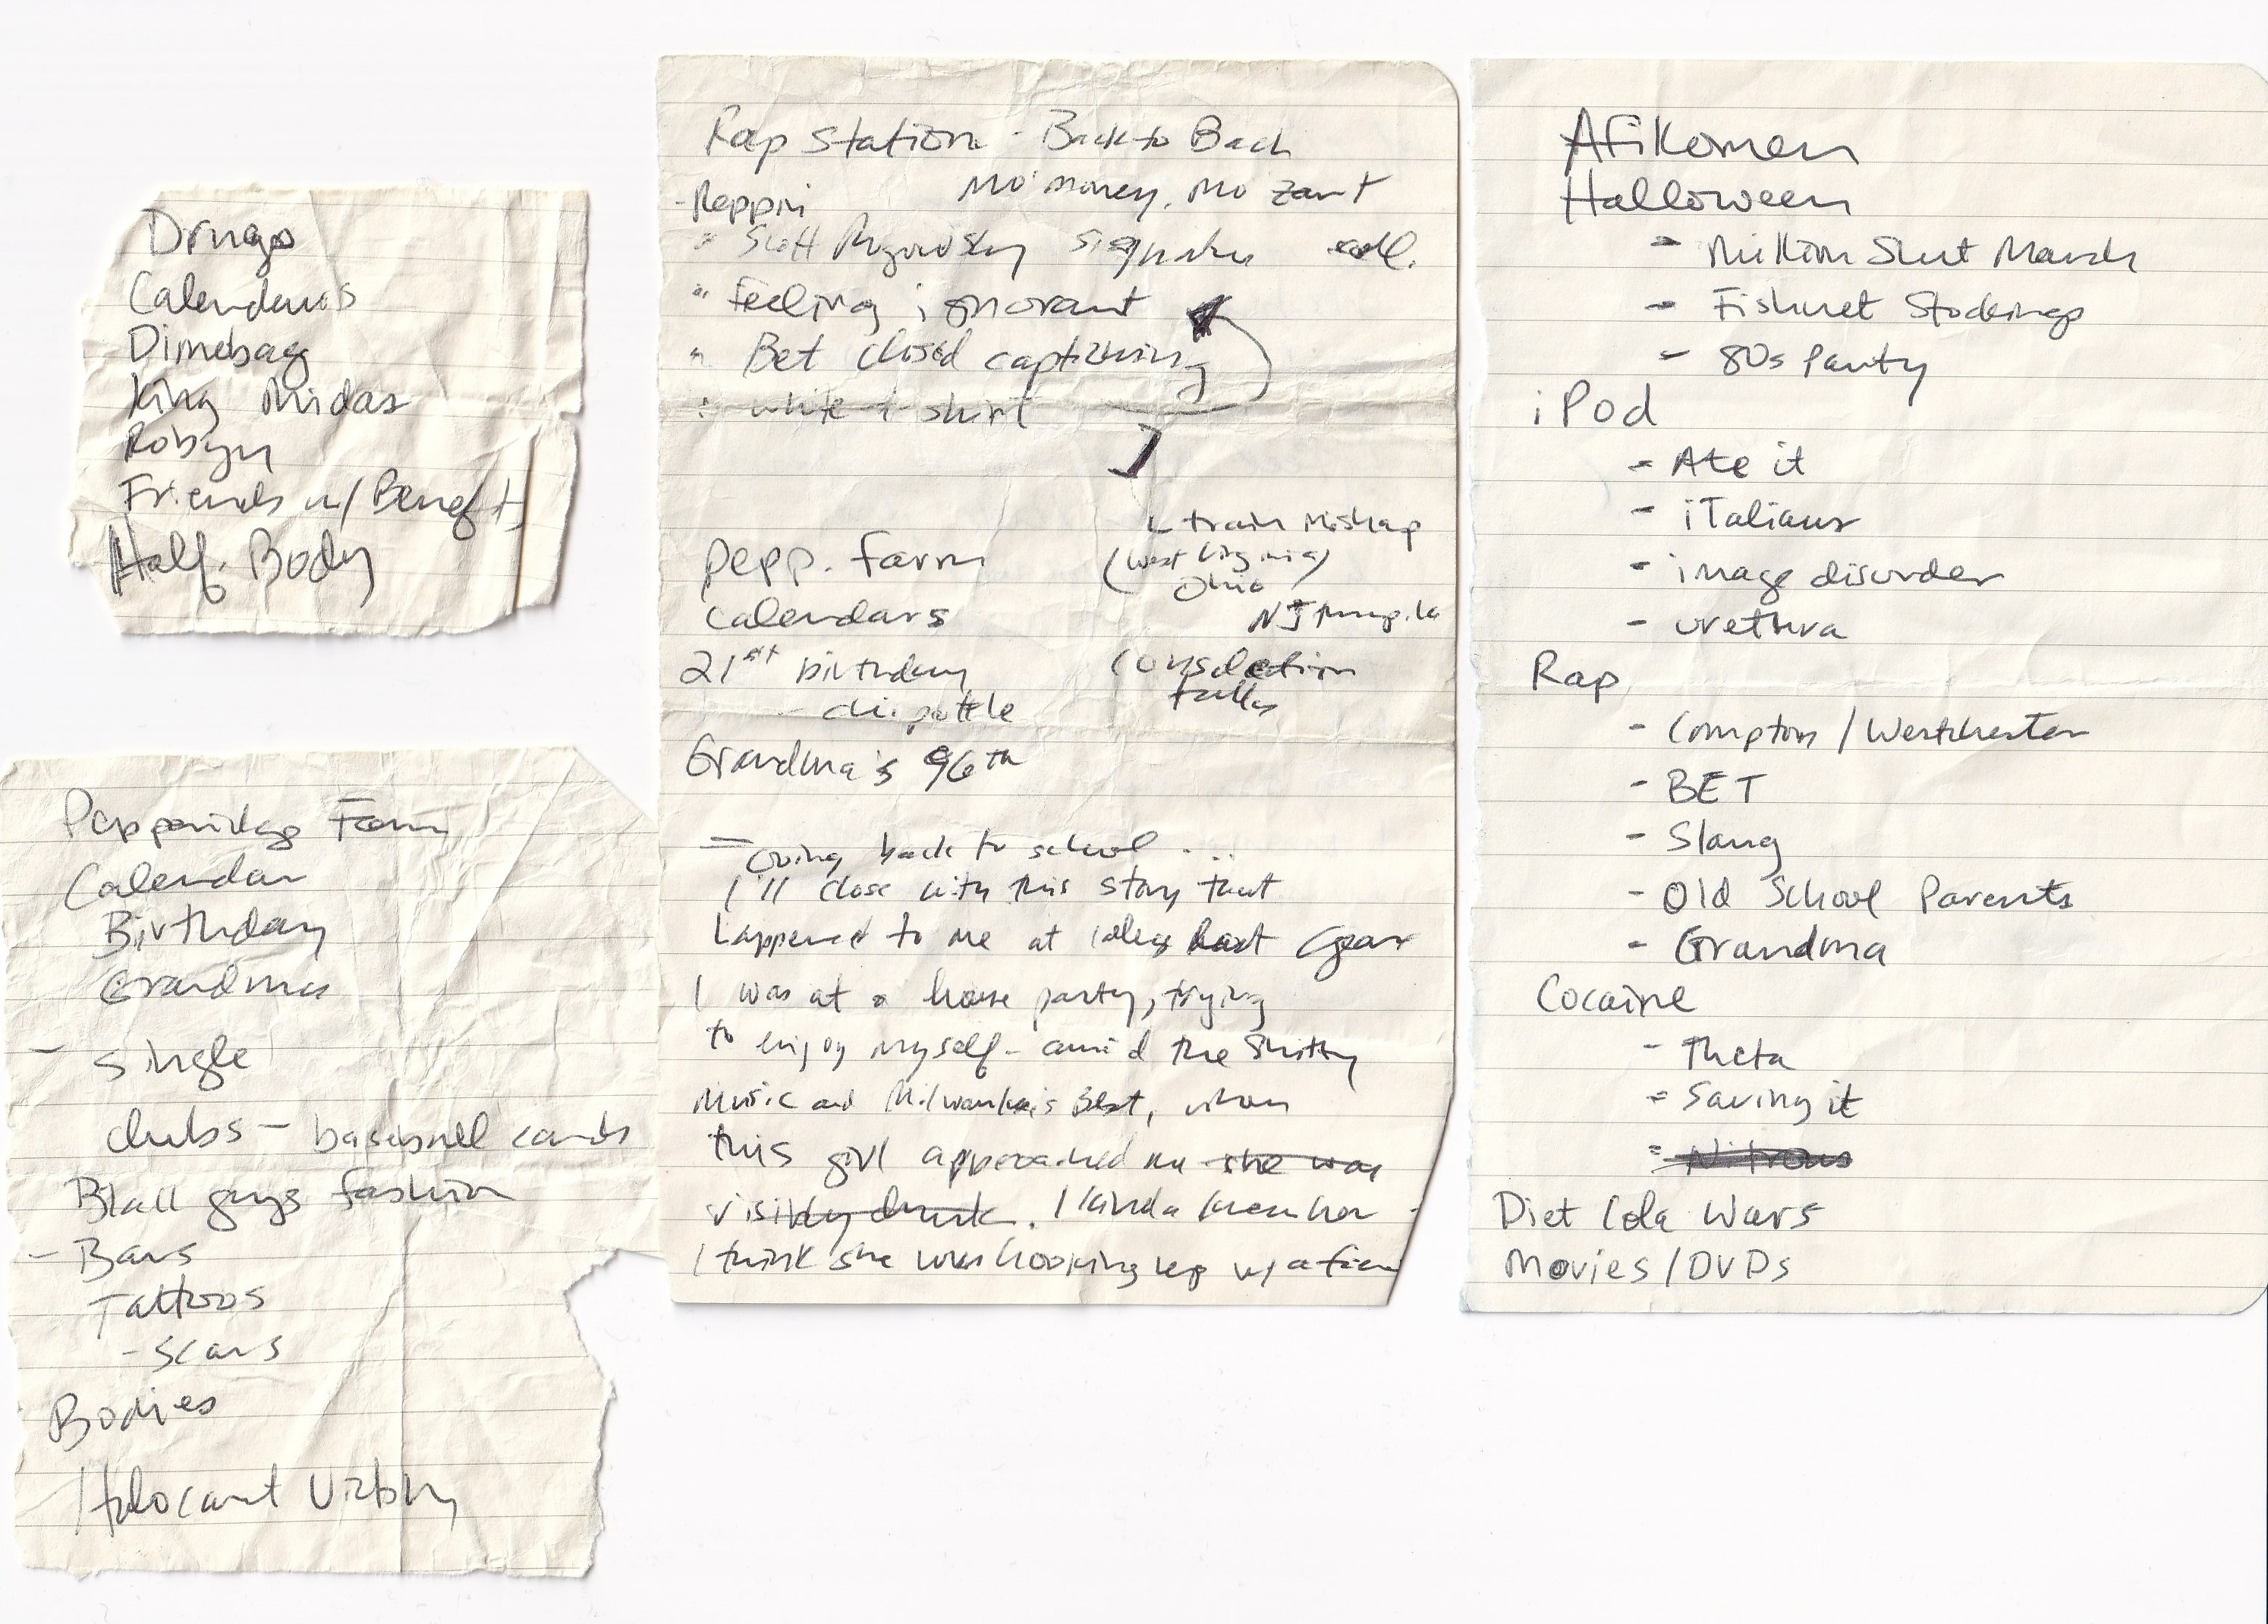 Drugs
Calendars
Dimebag
King Midas
Robyn
Friends w/ Benefits
Half. Body
Pepperidge Farm
Calendar
Birthday
Grandma
- single
clubs - baseball cards
guys fashion
- Bars
Tattoos
- scars
Bodies
Rap Station - Back to Bach
Mo' money, Mo'zart
- Reppin
" Scott signature
" Feeling ignorant
" Bet closed captioning
: white t shirt
L train mishap
(West Virginia)
Ohio
NJ
Pepp. Farm
Calendars
21st birthday
- chipottle
Consolation
talks
Grandma's 96th
- Going back to school ...
I'll close with this story that
happened to me at college last year
I was at a house party, trying
to enjoy myself - amid the shitty
music and Milwaukee's Best, when
this girl approached me she was
visibly drunk. I kinda knew her -
I think she was hooking up w/ a
Afikomen
Halloween
- Million Slut March
- Fishnet Stockings
- 80s Party
iPod
- Ate it
- iTalians
- image disorder
- urethra
Rap
- Compton / Westchester
- BET
- Slang
- Old School Parents
- Grandma
Cocaine
- Theta
- Saving it
- Nitrous
Diet Cola Wars
Movies/DVDs